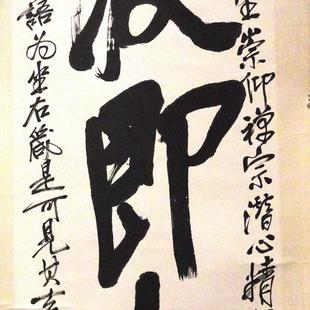 生崇仰禪宗潛心精
即
語为坐右箴是可見其